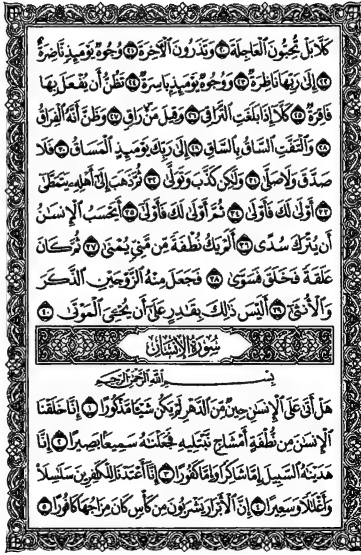 كَلَّا بَلْ تُحِبُّونَ الْعَاجِلَةَ ٢٠ وَتَذَرُونَ الْآخِرَةَ ٢١ وُجُوهٌ يَوْمَئِذٍ نَّاضِرَةٌ
٢٢ إِلَىٰ رَبِّهَا نَاظِرَةٌ ٢٣ وَوُجُوهٌ يَوْمَئِذٍ بَاسِرَةٌ ٢٤ تَظُنُّ أَن يُفْعَلَ بِهَا
فَاقِرَةٌ ٢٥ كَلَّا إِذَا بَلَغَتِ التَّرَاقِيَ ٢٦ وَقِيلَ مَنْ رَاقٍ ٢٧ وَظَنَّ أَنَّهُ الْفِرَاقُ
٢٨ وَالْتَفَّتِ السَّاقُ بِالسَّاقِ ٢٩ إِلَىٰ رَبِّكَ يَوْمَئِذٍ الْمَسَاقُ ٣٠ فَلَا
صَدَّقَ وَلَا صَلَّىٰ ٣١ وَلَٰكِن كَذَّبَ وَتَوَلَّىٰ ٣٢ ثُمَّ ذَهَبَ إِلَىٰ أَهْلِهِ يَتَمَطَّىٰ
٣٣ أَوْلَىٰ لَكَ فَأَوْلَىٰ ٣٤ ثُمَّ أَوْلَىٰ لَكَ فَأَوْلَىٰ ٣٥ أَيَحْسَبُ الْإِنسَٰنُ
أَن يُتْرَكَ سُدًى ٣٦ أَلَمْ يَكُ نُطْفَةً مِّن مَّنِيٍّ يُمْنَىٰ ٣٧ ثُمَّ كَانَ
عَلَقَةً فَخَلَقَ فَسَوَّىٰ ٣٨ فَجَعَلَ مِنْهُ الزَّوْجَيْنِ الذَّكَرَ
وَالْأُنثَىٰ ٣٩ أَلَيْسَ ذَٰلِكَ بِقَٰدِرٍ عَلَىٰ أَن يُحْيِيَ الْمَوْتَىٰ ٤٠
سُورَةُ الْإِنسَانِ
بِسْمِ اللَّهِ الرَّحْمَٰنِ الرَّحِيمِ
هَلْ أَتَىٰ عَلَى الْإِنسَٰنِ حِينٌ مِّنَ الدَّهْرِ لَمْ يَكُن شَيْئًا مَّذْكُورًا ١ إِنَّا خَلَقْنَا
الْإِنسَٰنَ مِن نُّطْفَةٍ أَمْشَاجٍ نَّبْتَلِيهِ فَجَعَلْنَٰهُ سَمِيعًا بَصِيرًا ٢ إِنَّا
هَدَيْنَٰهُ السَّبِيلَ إِمَّا شَاكِرًا وَإِمَّا كَفُورًا ٣ إِنَّا أَعْتَدْنَا لِلْكَٰفِرِينَ سَلَٰسِلَا۟
وَأَغْلَٰلًا وَسَعِيرًا ٤ إِنَّ الْأَبْرَارَ يَشْرَبُونَ مِن كَأْسٍ كَانَ مِزَاجُهَا كَافُورًا ٥